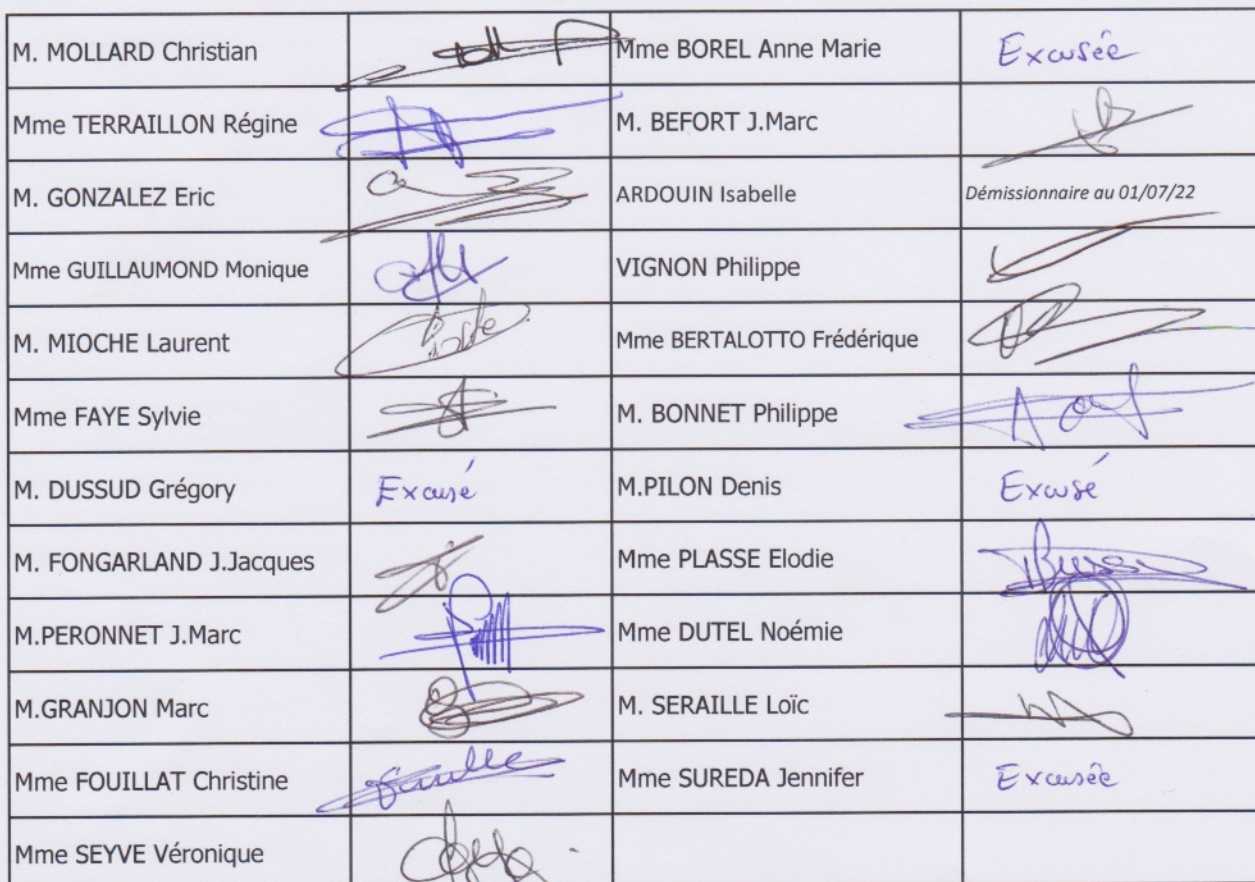 M. MOLLARD Christian
Mme BOREL Anne Marie
Excusée
Mme TERRAILLON Régine
M. BEFORT J.Marc
M. GONZALEZ Eric
ARDOUIN Isabelle
Démissionnaire au 01/07/22
Mme GUILLAUMOND Monique
VIGNON Philippe
M. MIOCHE Laurent
Mme BERTALOTTO Frédérique
Mme FAYE Sylvie
M. BONNET Philippe
M. DUSSUD Grégory
Excusé
M.PILON Denis
Excusé
M. FONGARLAND J.Jacques
Mme PLASSE Elodie
M.PERONNET J.Marc
Mme DUTEL Noémie
M.GRANJON Marc
M. SERAILLE Loïc
Mme FOUILLAT Christine
Mme SUREDA Jennifer
Excusée
Mme SEYVE Véronique